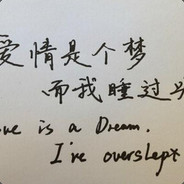 爱情是个梦
而我睡过
ove is a Dream.
I've overslept